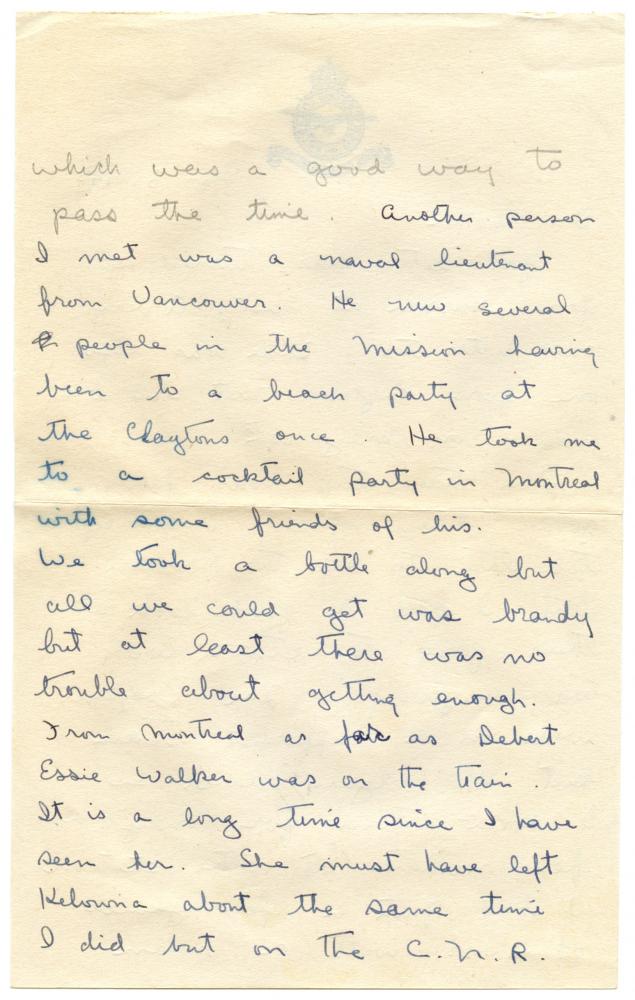 which was a good way to
pass the time. Another person
I met was a naval lieutenant
from Vancouver. He new several
people in the Mission having
been to a beach party at
the Claytons once. He took me
to a cocktail party in Montreal
with some friends of his.
We took a bottle along but
all we could get was brandy
but at least there was no
trouble about getting enough.
From Montreal as far as Debert
Essie Walker was on the train.
It is a long time since I have
seen her. She must have left
Kelowna about the same time
I did but on the C.N.R.